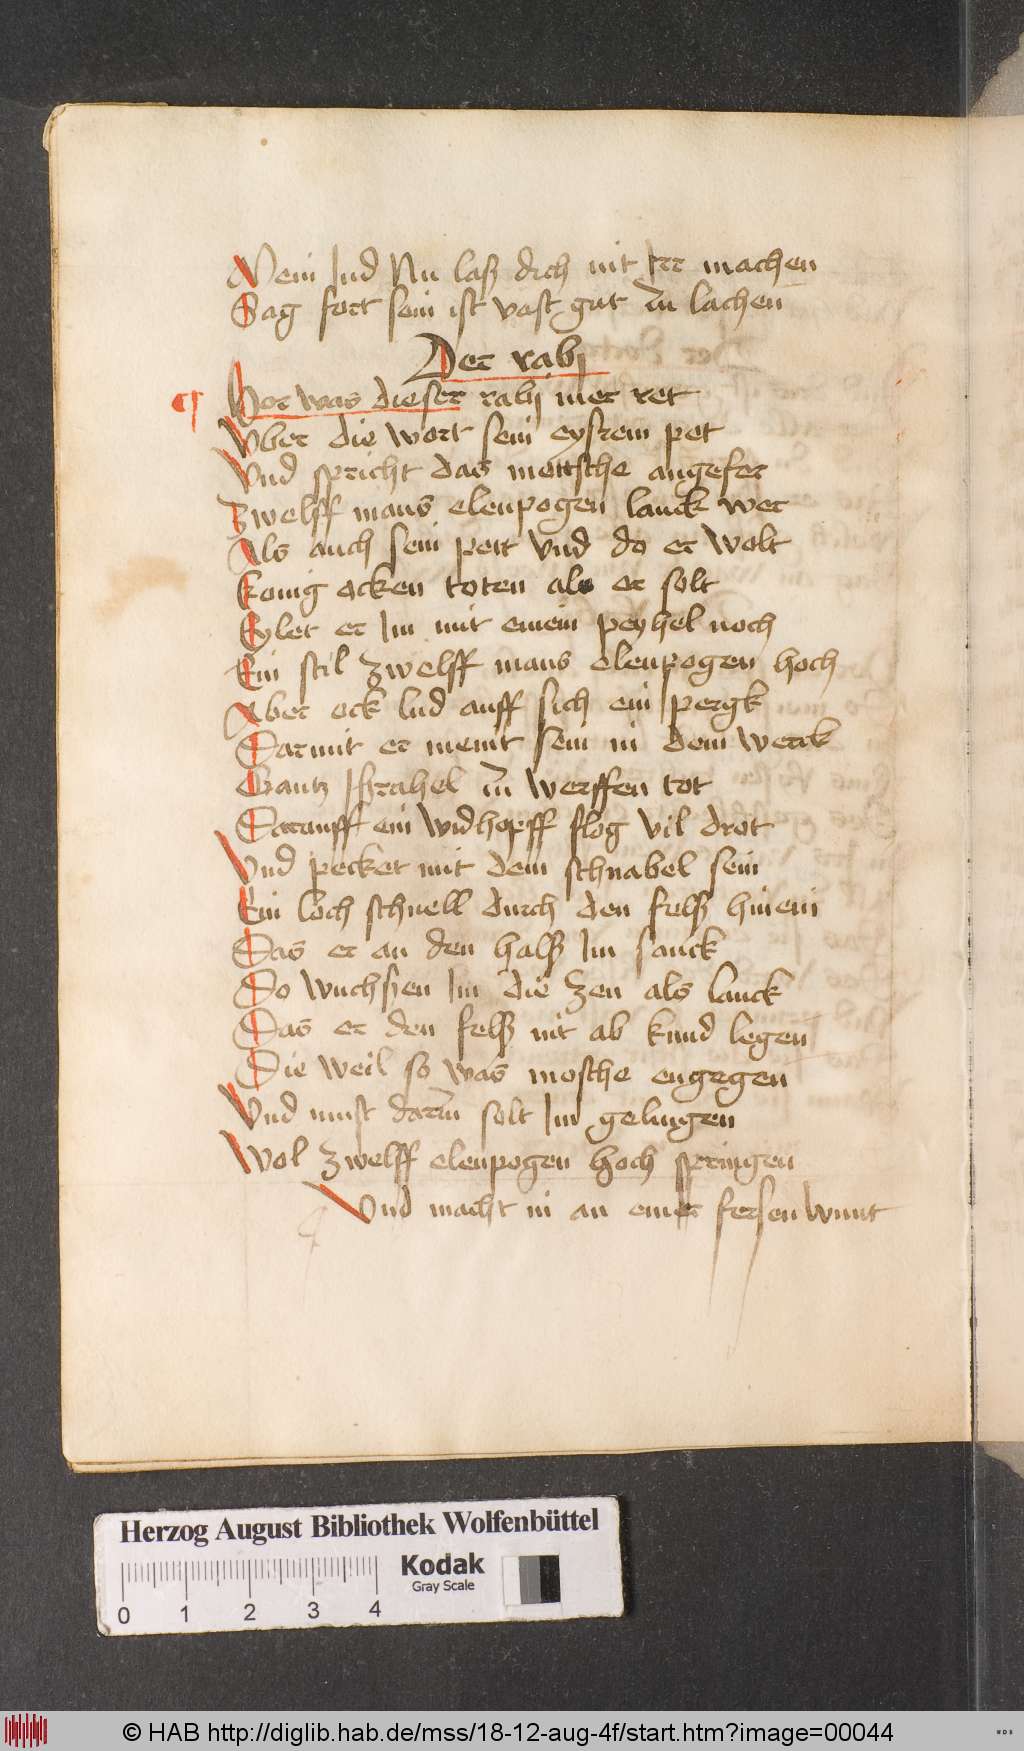 Mein Jud Nu laß dich nit Irr machen
Sag fort sein ist vast gut zu lachen
Der rabj
¶ Hor was dieser rabj mer ret
Vber die wort sein eysrein pet
Vnd spricht das mosche angefer
Zwelff mans elenpogen lanck wer
Als auch sein pett vnd do er wolt
Konig ocken toten als er solt
Eylet er Im mit einem peyhel noch
Ein stil zwelff mans elenpogen hoch
Aber ock lud auff sich ein pergk
Darmit er meint sein in dem werck
Gantz Jsrahel zu werffen tot
Darauff ein widhopff flog vil drot
Vnd pecket mit dem schnabel sein
Ein loch schnell durch den felß hinein
Das er an den halß Im sanck
Do wuchsen Im die zen als lanck
Das er den felß nit ab kund legen
Die weil so was mosche engegen
Vnd must darin solt Im gelingen
Wol zwelff elenpogen hoch springen
Vnd macht in an einer fersen wunt
Herzog August Bibliothek Wolfenbüttel
Kodak
Gray Scale
0 1 2 3 4
© HAB http://diglib.hab.de/mss/18-12-aug-4f/start.htm?image=00044
WDB